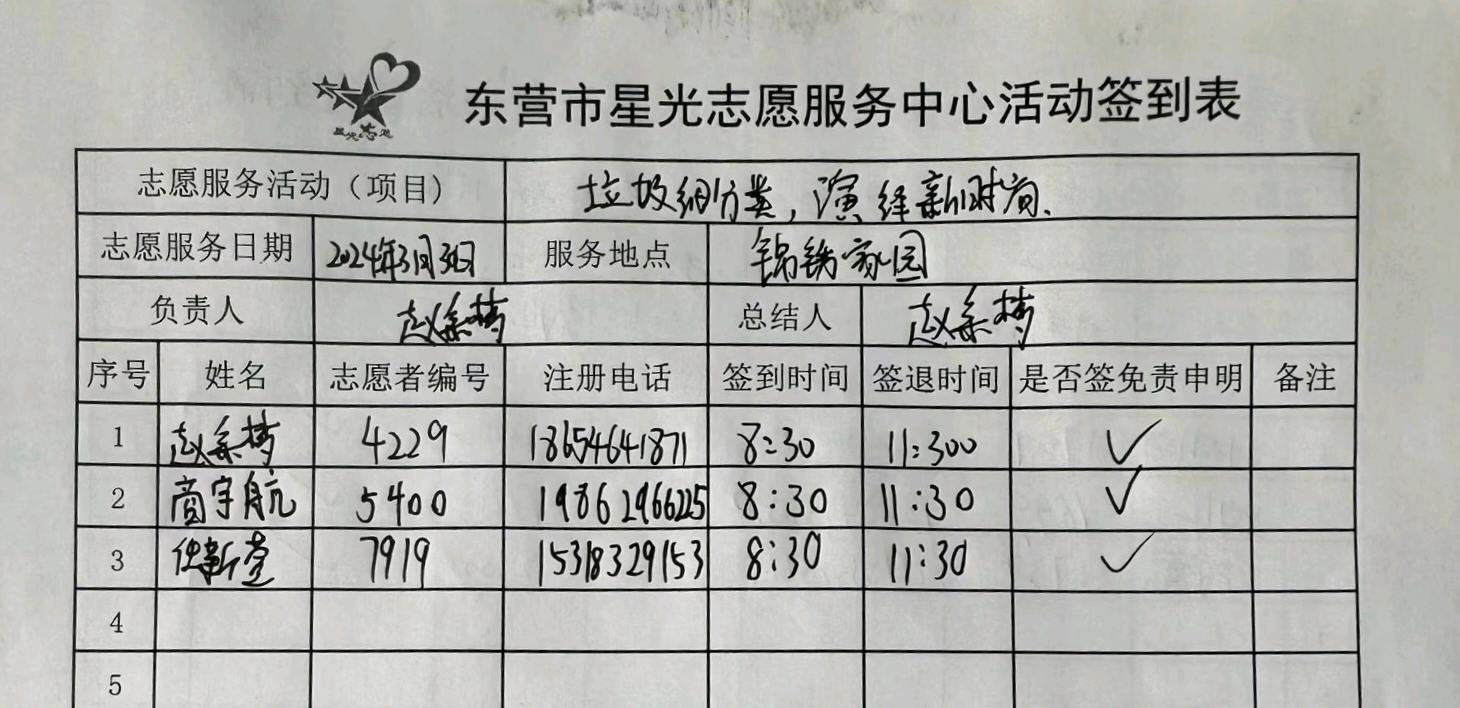 星光志愿
东营市星光志愿服务中心活动签到表
志愿服务活动（项目） 垃圾细分类，演绎新时尚.
志愿服务日期 2024年3月30日 服务地点 锦绣家园
负责人 赵 总结人 赵
序号 姓名 志愿者编号 注册电话 签到时间 签退时间 是否签免责申明 备注
1 赵 4229 18654641871 8:30 11:300 ✓
2 商宇航 5400 19862966225 8:30 11:30 ✓
3 新 7919 15318329153 8:30 11:30 ✓
4
5